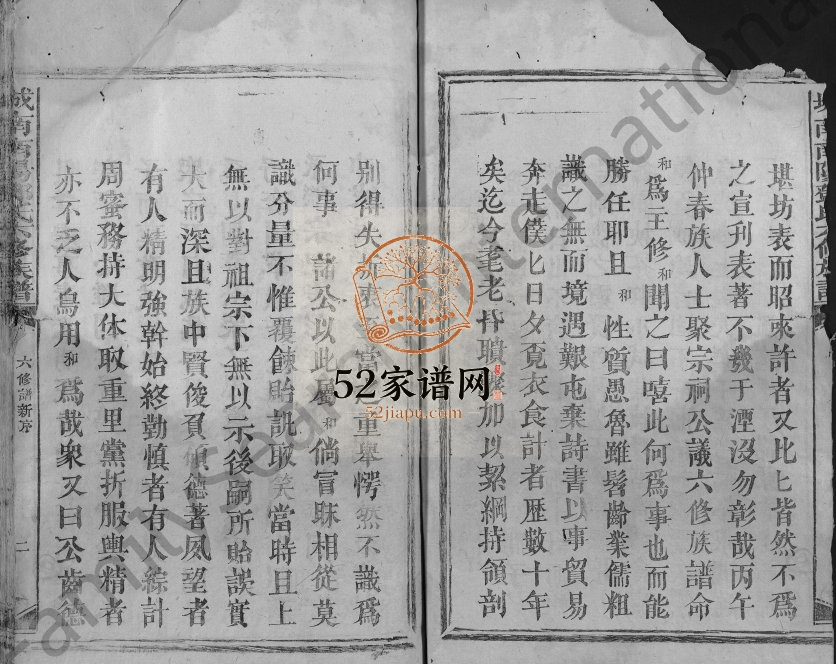 堪坊表而昭來許者又比匕皆然不爲
之宣刋表著不㡬于湮沒勿彰哉丙午
仲春族人士聚宗祠公議六修族譜命
和爲主修和聞之曰嘻此何爲事也而能
勝任耶且和性質愚魯雖髫齡業儒粗
識之無而境遇艱屯棄詩書以事貿易
奔走僕匕日夕覔衣食計者歷數十年
矣迄今耄老昏聵加以絜綱持領剖
別得失表富重舉愕然不識爲
何事諸公以此屬和倘冒昧相從莫
識分量不惟覆餗貽譏取笑當時且上
無以對祖宗下無以示後嗣所貽誤實
大而深且族中賢俊負碩德著夙望者
有人精明強幹始終勤慎者有人綜計
周蜜務持大体取重里黨折服輿精者
亦不乏人烏用和爲哉衆又曰公齒德
六修譜新序
二
52家谱网
52jiapu.com
FamilySearch International